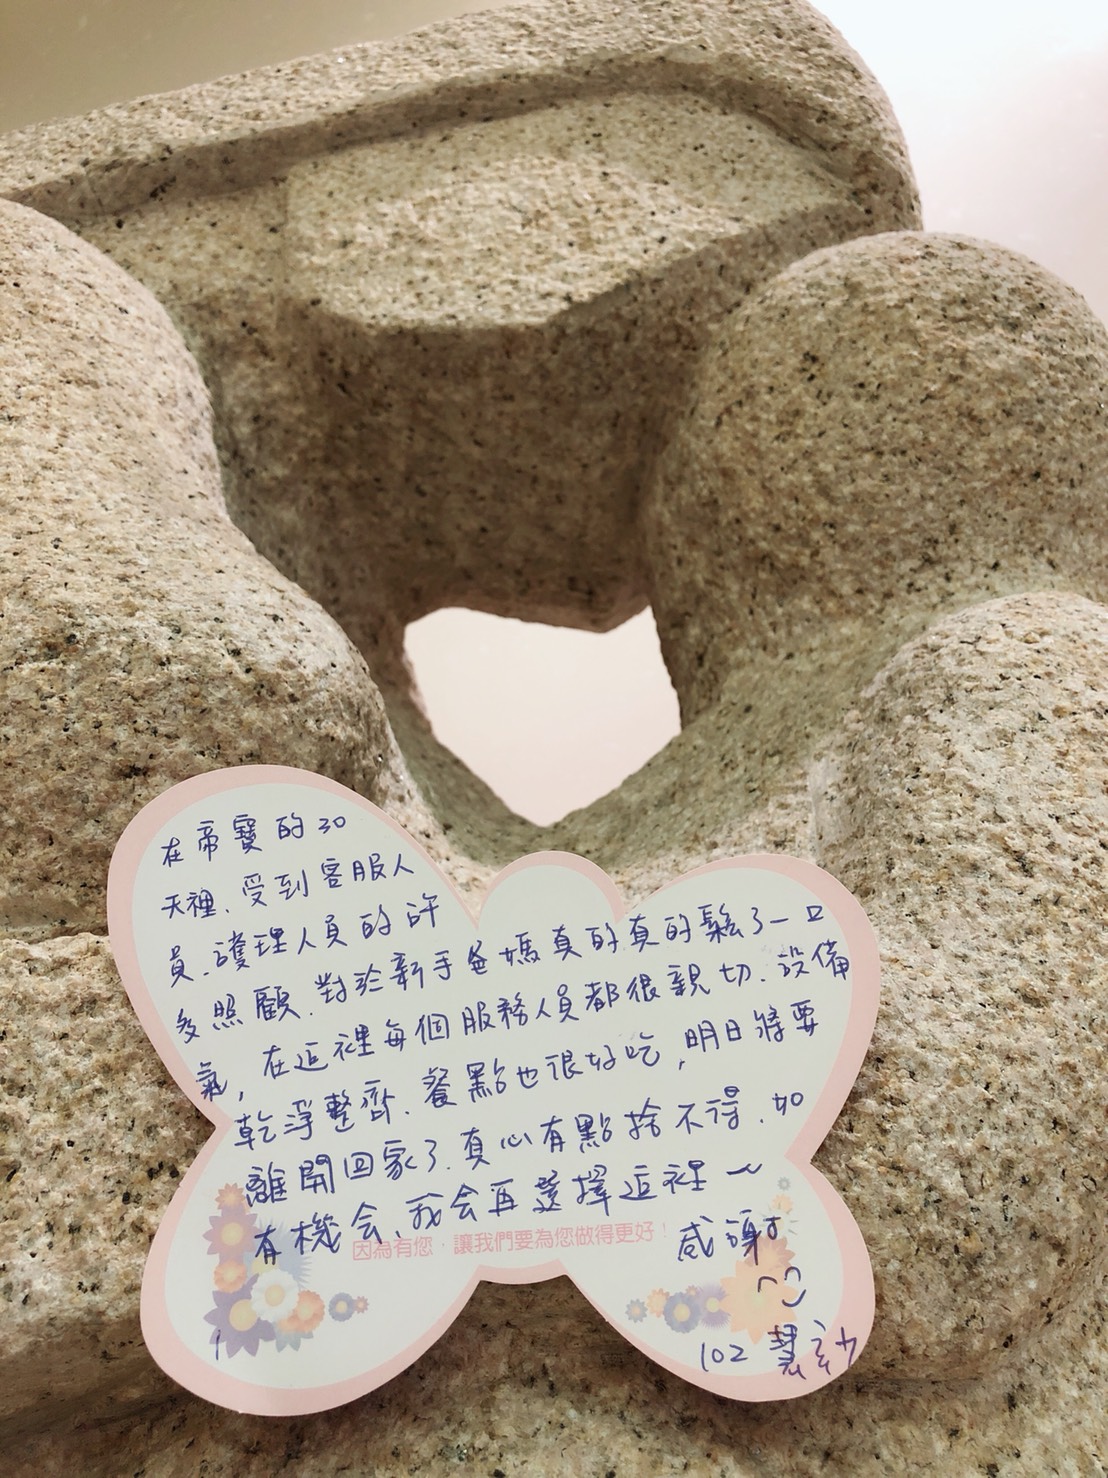 在帝寶的30
天裡、受到客服人
員、護理人員的許
多照顧.對於新手爸媽真的真的鬆了一口
氣，在這裡每個服務人員都很親切.設備
乾淨整齊.餐點也很好吃，明日將要
離開回家了.真心有點捨不得.如
有機会、我会再選擇這裡～
因為有您，讓我們要為您做得更好！
感謝
102 慧